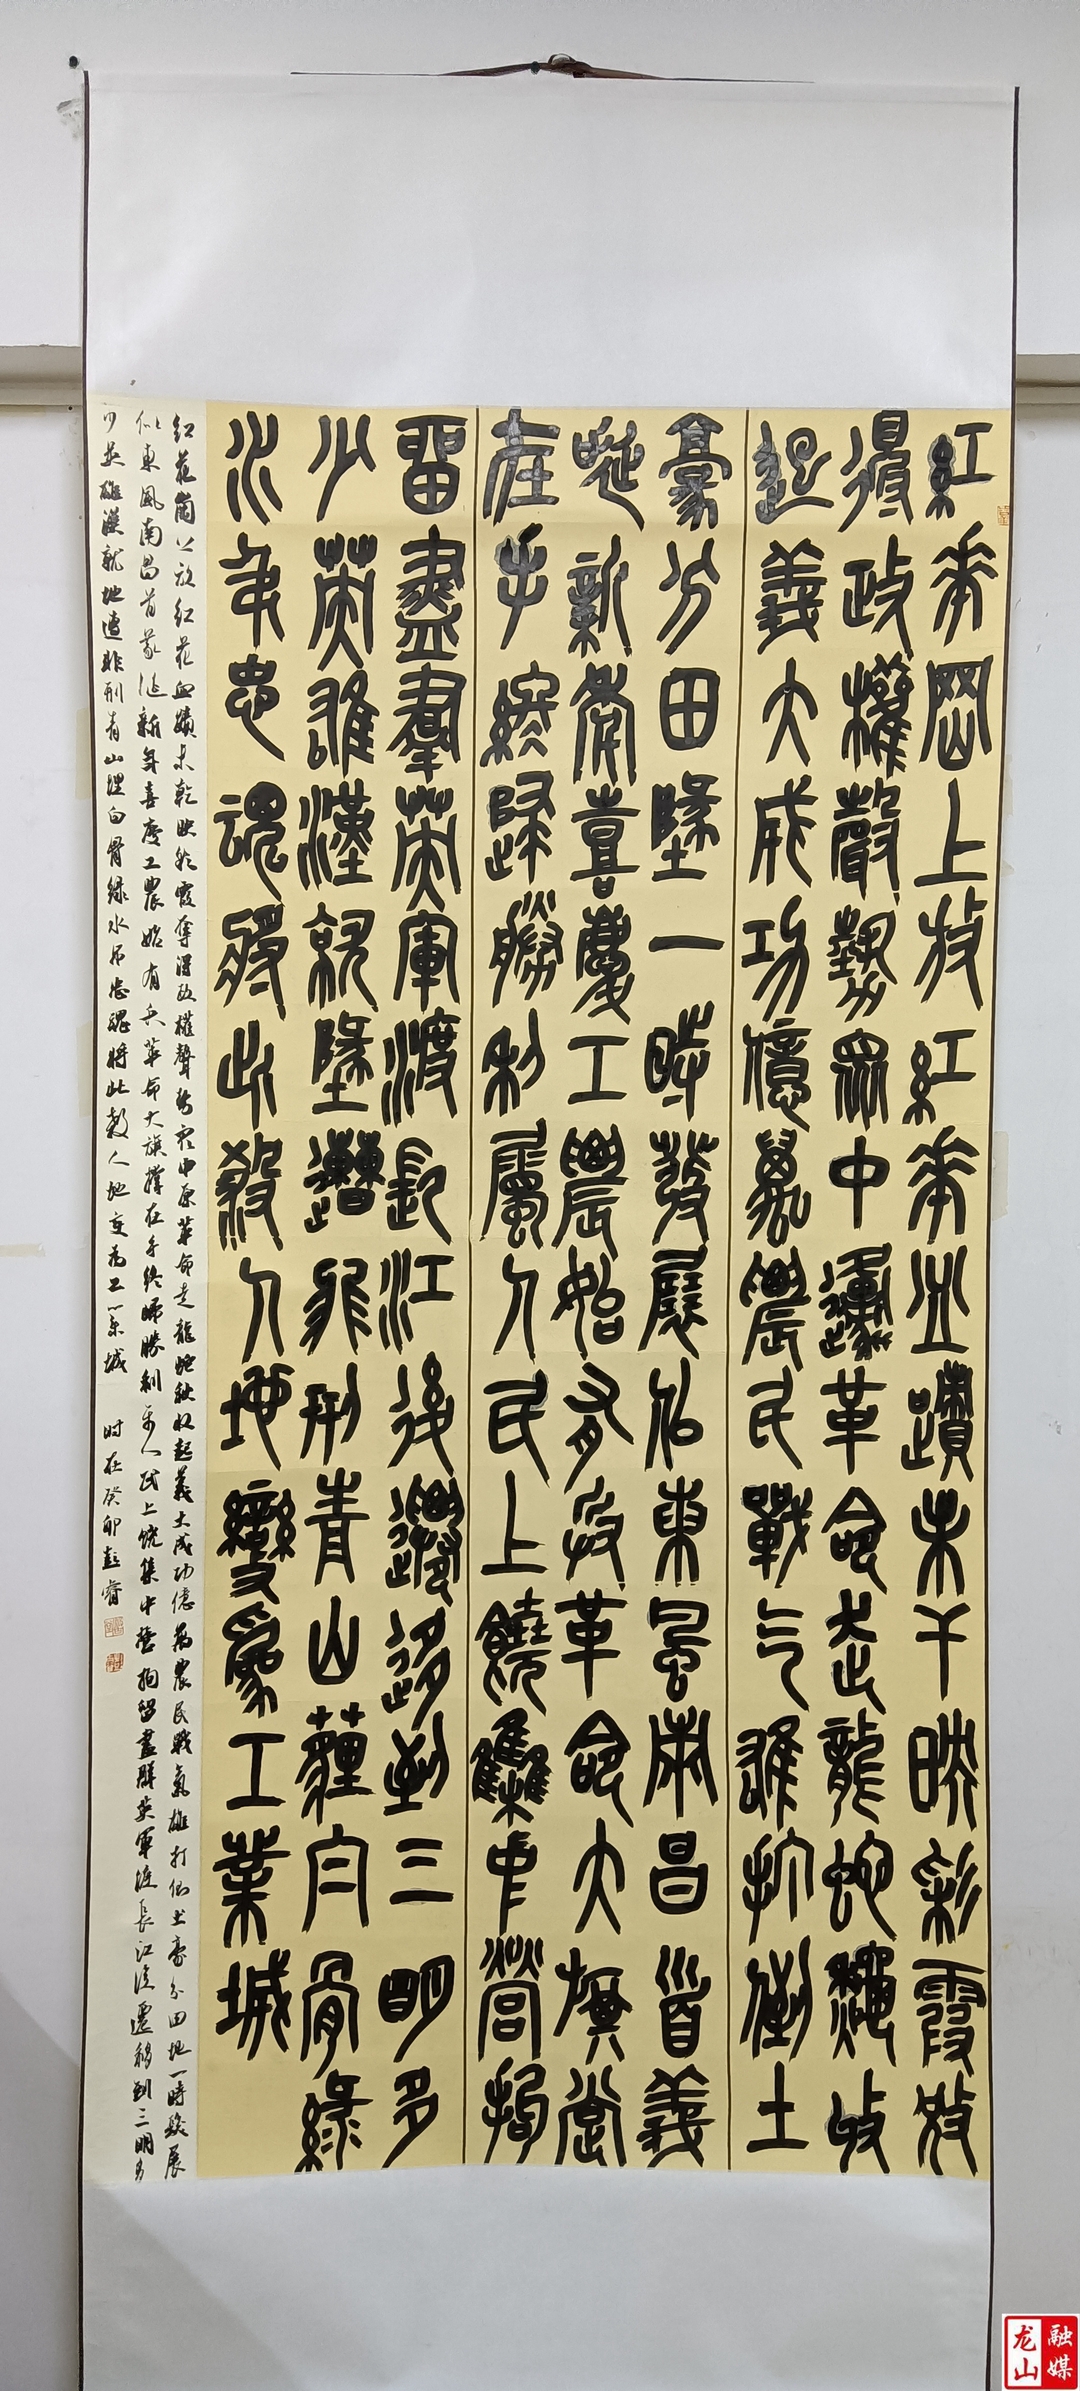 紅華岡上放紅華血蹟未干映彩霞敚
得政權聲勢眾中邍革命走龍蛇秋收
起義大成功億萬農民戰气雄打倒土
豪分田地一時發展似東風南昌首義
誕新軍喜慶工農始有兵革命大旗掌
在手終歸勝利屬人民上饒集中營拘
留盡群英軍渡長江後遷移到三明多
少英雄漢就地遭非刑青山薶白骨綠
水弔忠魂將此殺人地變為工業城
紅花崗上放紅花血蹟未乾映彩霞奪得政權聲勢眾中原革命走龍蛇秋收起義大成功億萬農民戰氣雄打倒土豪分田地一時發展
似東風南昌首義誕新軍喜慶工農始有兵革命大旗撐在手終歸勝利屬人民上饒集中營拘留盡群英軍渡長江後遷移到三明多
少英雄漢就地遭非刑青山埋白骨綠水吊忠魂將此殺人地变为工業城 时在癸卯彭睿
龙山
融媒